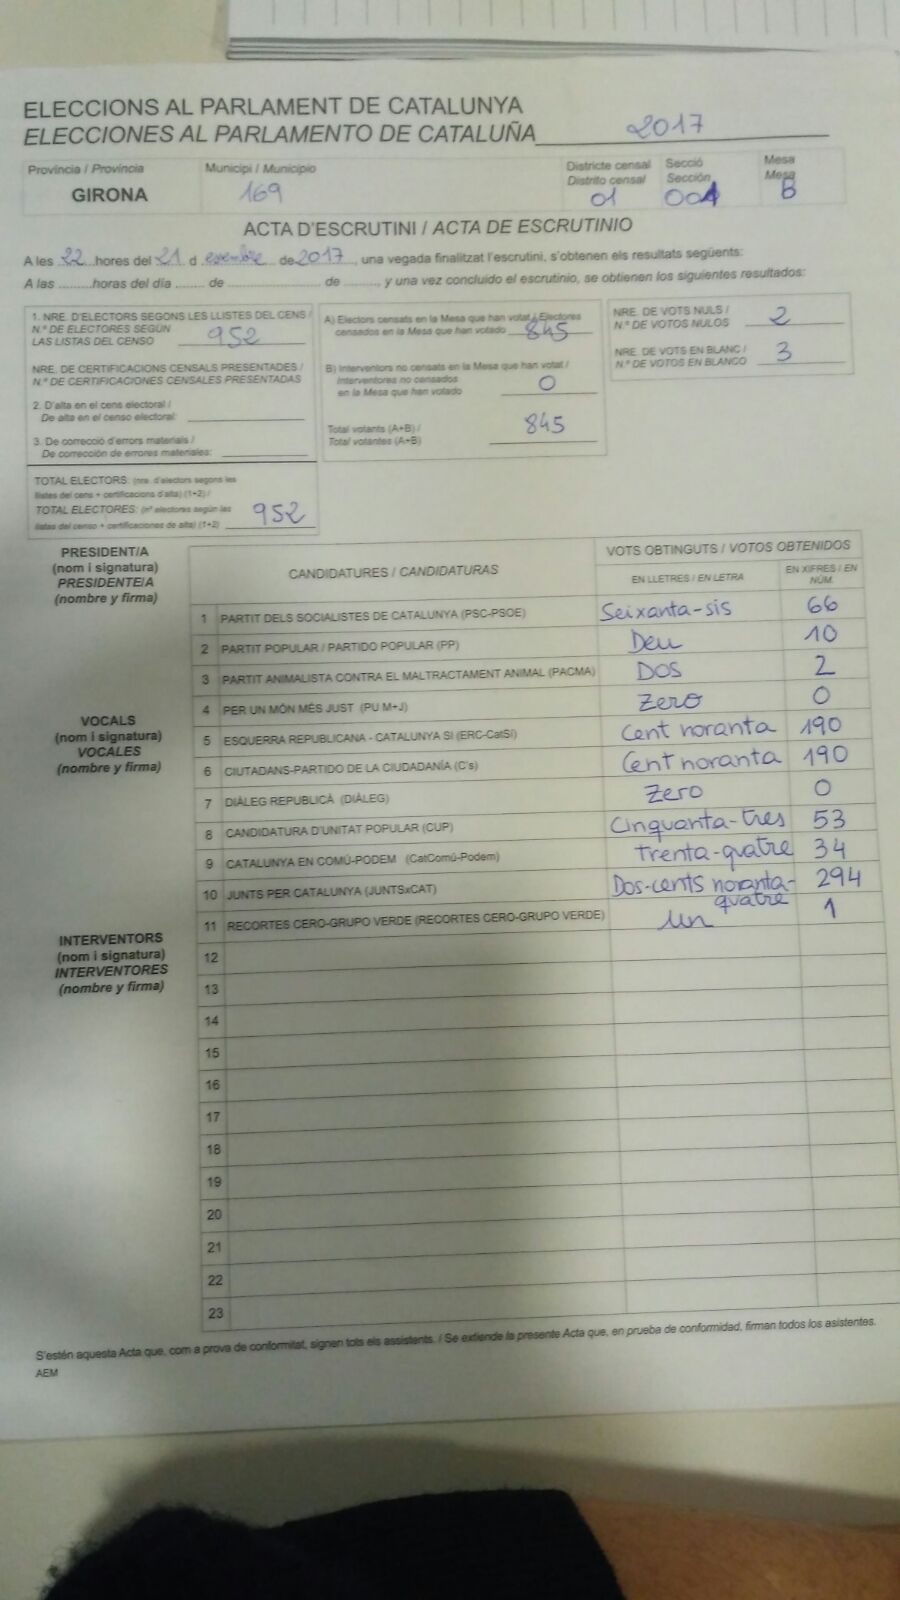 ELECCIONS AL PARLAMENT DE CATALUNYA
ELECCIONES AL PARLAMENTO DE CATALUÑA 2017
Província / Provincia
GIRONA
Municipi / Municipio
169
Districte censal
Distrito censal
01
Secció
Sección
001
Mesa
Mesa
B
ACTA D'ESCRUTINI / ACTA DE ESCRUTINIO
A les 22 hores del 21 d esembre de 2017, una vegada finalitzat l'escrutini, s'obtenen els resultats següents:
A las ......... horas del día ........ de ........................ de ........, y una vez concluido el escrutinio, se obtienen los siguientes resultados:
1. NRE. D'ELECTORS SEGONS LES LLISTES DEL CENS /
N.º DE ELECTORES SEGÚN
LAS LISTAS DEL CENSO 952
NRE. DE CERTIFICACIONS CENSALS PRESENTADES /
N.º DE CERTIFICACIONES CENSALES PRESENTADAS
2. D'alta en el cens electoral /
De alta en el censo electoral:
3. De correcció d'errors materials /
De corrección de errores materiales:
TOTAL ELECTORS: (nre. d'electors segons les
llistes del cens + certificacions d'alta) (1+2) /
TOTAL ELECTORES: (nº electores según las
listas del censo + certificaciones de alta) (1+2) 952
A) Electors censats en la Mesa que han votat / Electores
censados en la Mesa que han votado 845
B) Interventors no censats en la Mesa que han votat /
Interventores no censados
en la Mesa que han votado 0
Total votants (A+B) /
Total votantes (A+B) 845
NRE. DE VOTS NULS /
N.º DE VOTOS NULOS 2
NRE. DE VOTS EN BLANC /
N.º DE VOTOS EN BLANCO 3
PRESIDENT/A
(nom i signatura)
PRESIDENTE/A
(nombre y firma)
VOCALS
(nom i signatura)
VOCALES
(nombre y firma)
INTERVENTORS
(nom i signatura)
INTERVENTORES
(nombre y firma)
CANDIDATURES / CANDIDATURAS
VOTS OBTINGUTS / VOTOS OBTENIDOS
EN LLETRES / EN LETRA
EN XIFRES / EN
NÚM.
1 PARTIT DELS SOCIALISTES DE CATALUNYA (PSC-PSOE) Seixanta-sis 66
2 PARTIT POPULAR / PARTIDO POPULAR (PP) Deu 10
3 PARTIT ANIMALISTA CONTRA EL MALTRACTAMENT ANIMAL (PACMA) DOS 2
4 PER UN MÓN MÉS JUST (PU M+J) Zero 0
5 ESQUERRA REPUBLICANA - CATALUNYA SI (ERC-CatSí) Cent noranta 190
6 CIUTADANS-PARTIDO DE LA CIUDADANÍA (C's) Cent noranta 190
7 DIÀLEG REPUBLICÀ (DIÀLEG) Zero 0
8 CANDIDATURA D'UNITAT POPULAR (CUP) Cinquanta-tres 53
9 CATALUNYA EN COMÚ-PODEM (CatComú-Podem) Trenta-quatre 34
10 JUNTS PER CATALUNYA (JUNTSxCAT) Dos-cents noranta- 294
quatre
11 RECORTES CERO-GRUPO VERDE (RECORTES CERO-GRUPO VERDE) Un 1
12
13
14
15
16
17
18
19
20
21
22
23
S'estén aquesta Acta que, com a prova de conformitat, signen tots els assistents. / Se extiende la presente Acta que, en prueba de conformidad, firman todos los asistentes.
AEM